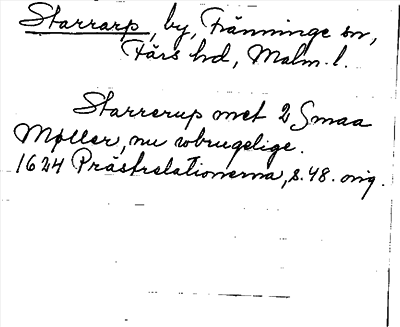 Starrarp, by, Tränninge sn,
Färs hd, Malm. l.
Starrerup met 2 Smaa
Møller, nu wbrugelige.
1624 Prästrelationerna, s. 48. orig.